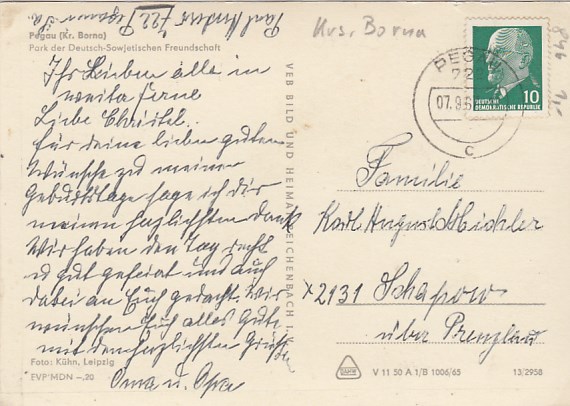 Paul Anders 722 Pegau i. Sa.
Krs. Borna
846
1,-
Pegau (Kr. Borna)
Park der Deutsch-Sowjetischen Freundschaft
PEGAU
722
07.9.6
c
DEUTSCHE
DEMOKRATISCHE REPUBLIK
10
Ihr Lieben alle in
weiter Ferne
Liebe Christel.
Für deine lieben guten
Wünsche zu meinem
Geburtstage sage ich dir
meinen herzlichsten Dank
Wir haben den Tag recht
gut gefeiert und auch
dabei an Euch gedacht. Wir
wünschen Euch alles Gute
mit den herzlichsten Grüßen
Oma u. Opa
VEB BILD UND HEIMAT REICHENBACH I. V.
Familie
Karl August
x 2131 Schapow
über Prenzlau
Foto: Kühn, Leipzig
EVP MDN -,20
V 11 50 A 1/B 1006/65
13/2958